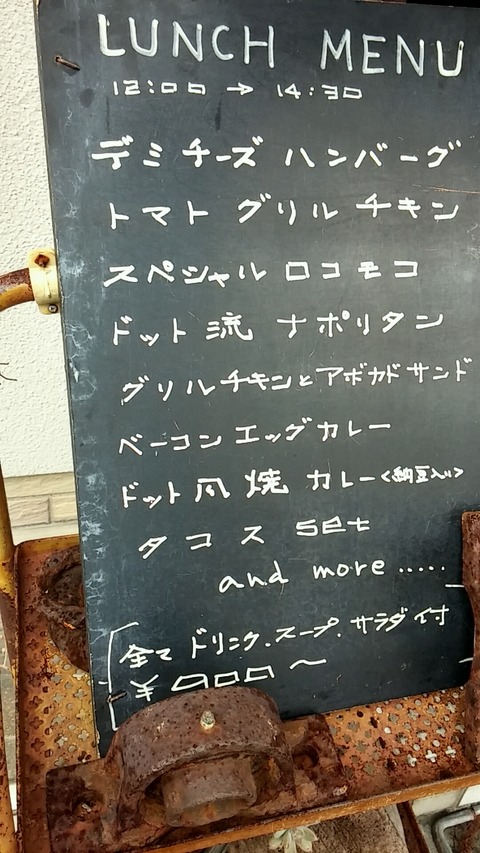 LUNCH MENU
12:00 → 14:30
デミ チーズ ハンバーグ
トマト グリル チキン
スペシャル ロコモコ
ドット 流 ナポリタン
グリルチキンとアボカド サンド
ベーコン エッグ カレー
ドット 風 焼 カレー<納豆入り>
タコス set
and more .....
全て ドリンク.スープ.サラダ 付
¥ 900 ~